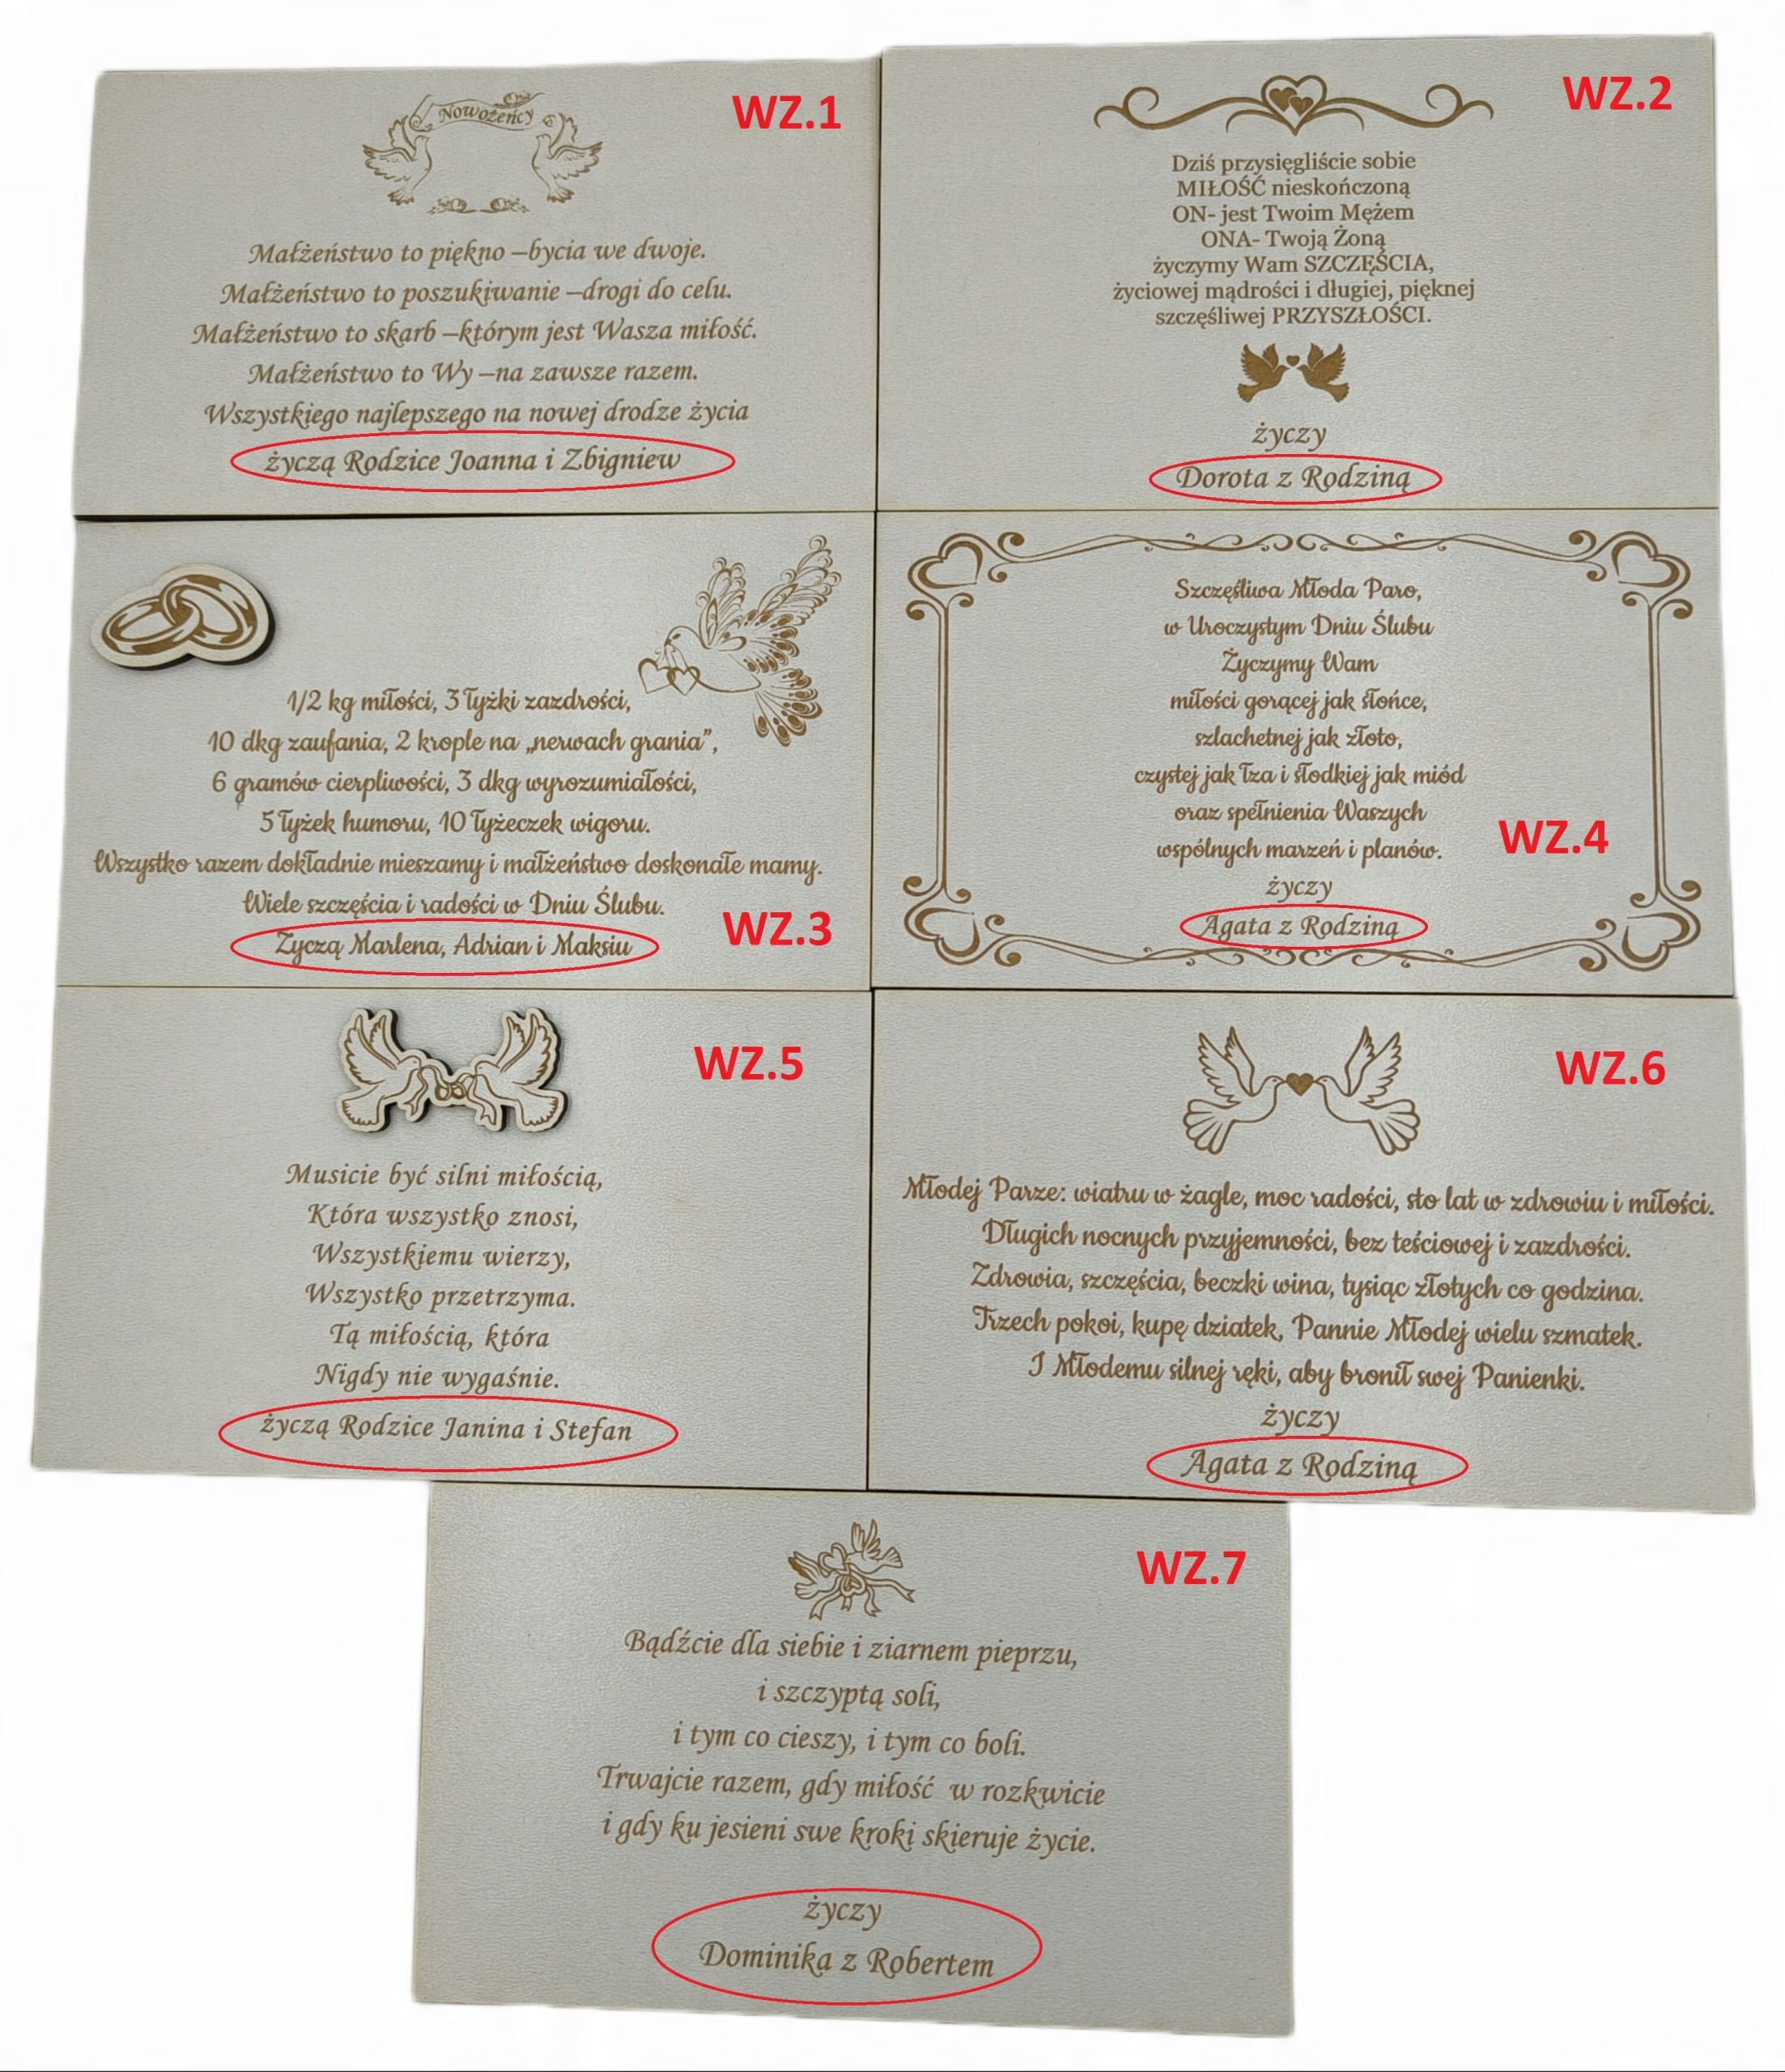 WZ.1
Nowożeńcy
Małżeństwo to piękno –bycia we dwoje.
Małżeństwo to poszukiwanie –drogi do celu.
Małżeństwo to skarb –którym jest Wasza miłość.
Małżeństwo to Wy –na zawsze razem.
Wszystkiego najlepszego na nowej drodze życia
życzą Rodzice Joanna i Zbigniew
WZ.2
Dziś przysięgliście sobie
MIŁOŚĆ nieskończoną
ON- jest Twoim Mężem
ONA- Twoją Żoną
życzymy Wam SZCZĘŚCIA,
życiowej mądrości i długiej, pięknej
szczęśliwej PRZYSZŁOŚCI.
życzy
Dorota z Rodziną
1/2 kg miłości, 3 łyżki zazdrości,
10 dkg zaufania, 2 krople na „nerwach grania”,
6 gramów cierpliwości, 3 dkg wyrozumiałości,
5 łyżek humoru, 10 łyżeczek wigoru.
Wszystko razem dokładnie mieszamy i małżeństwo doskonałe mamy.
Wiele szczęścia i radości w Dniu Ślubu.
Życzą Marlena, Adrian i Maksiu
WZ.3
Szczęśliwa Młoda Paro,
w Uroczystym Dniu Ślubu
Życzymy Wam
miłości gorącej jak słońce,
szlachetnej jak złoto,
czystej jak łza i słodkiej jak miód
oraz spełnienia Waszych
wspólnych marzeń i planów.
życzy
Agata z Rodziną
WZ.4
WZ.5
Musicie być silni miłością,
Która wszystko znosi,
Wszystkiemu wierzy,
Wszystko przetrzyma.
Tą miłością, która
Nigdy nie wygaśnie.
życzą Rodzice Janina i Stefan
WZ.6
Młodej Parze: wiatru w żagle, moc radości, sto lat w zdrowiu i miłości.
Długich nocnych przyjemności, bez teściowej i zazdrości.
Zdrowia, szczęścia, beczki wina, tysiąc złotych co godzina.
Trzech pokoi, kupę dziatek, Pannie Młodej wielu szmatek.
I Młodemu silnej ręki, aby bronił swej Panienki.
życzy
Agata z Rodziną
WZ.7
Bądźcie dla siebie i ziarnem pieprzu,
i szczyptą soli,
i tym co cieszy, i tym co boli.
Trwajcie razem, gdy miłość w rozkwicie
i gdy ku jesieni swe kroki skieruje życie.
życzy
Dominika z Robertem